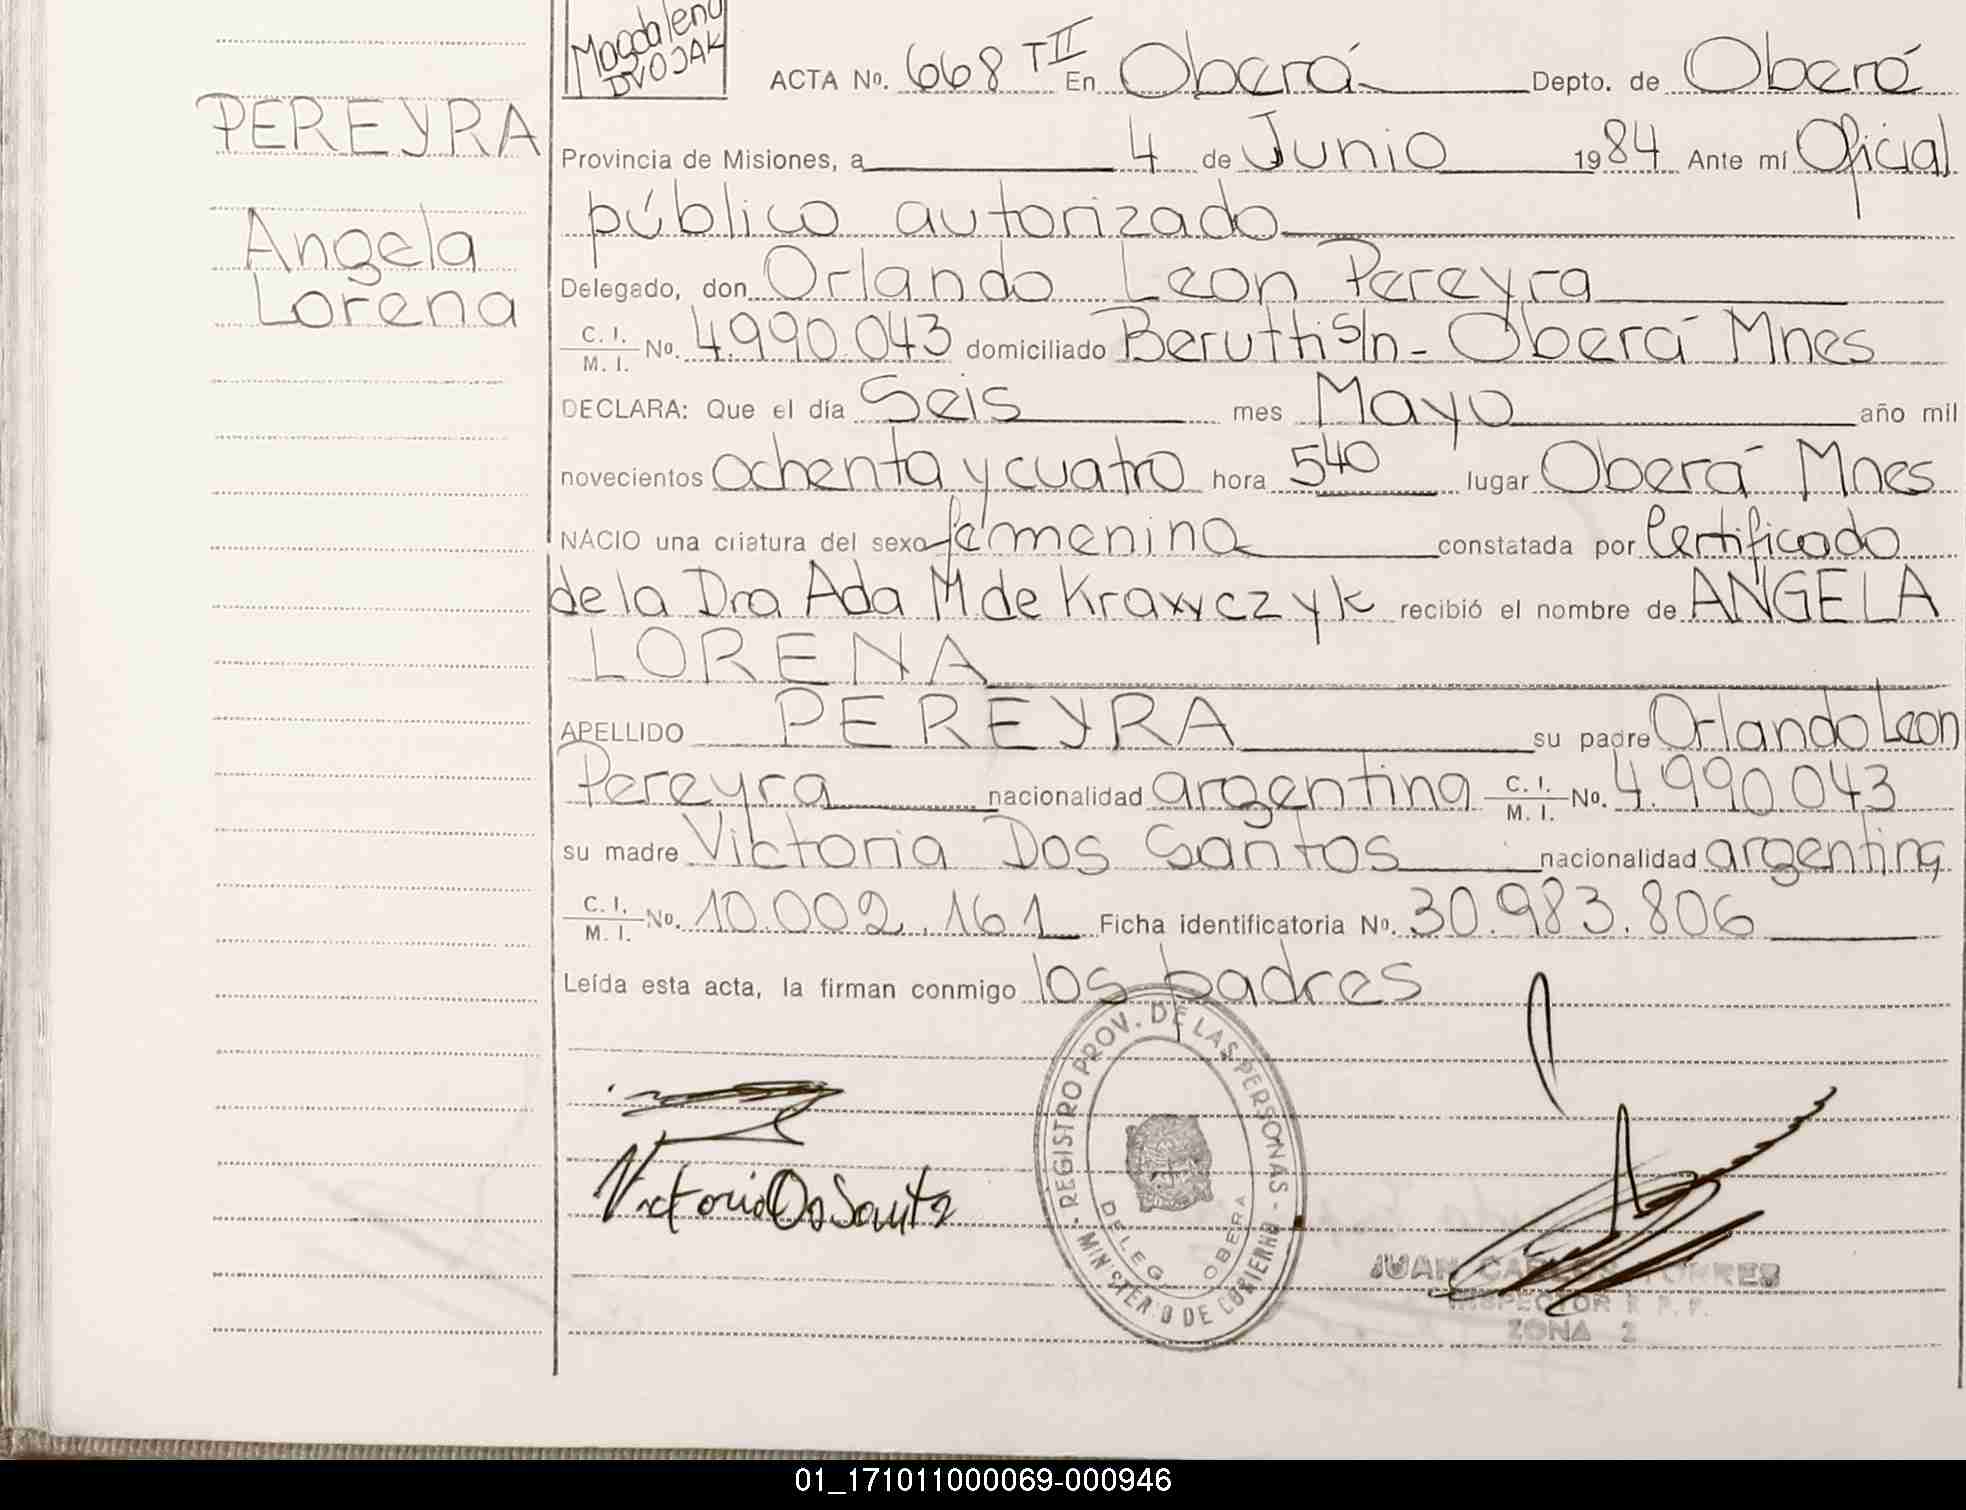 Magdalena
DVOJAK
ACTA No. 668 TII En Oberá Depto. de Oberá
PEREYRA
Provincia de Misiones, a 4 de Junio 1984 Ante mí Oficial
público autorizado
Angela
Lorena
Delegado, don Orlando Leon Pereyra
C. I.
M. I. No. 4.990.043 domiciliado Berutti s/n - Oberá Mnes
DECLARA: Que el día Seis mes Mayo año mil
novecientos ochenta y cuatro hora 540 lugar Oberá Mnes
NACIO una criatura del sexo femenino constatada por Certificado
de la Dra Ada M de Krawczyk recibió el nombre de ANGELA
LORENA
APELLIDO PEREYRA su padre Orlando Leon
Pereyra nacionalidad argentina C. I. M. I. No. 4.990.043
su madre Victoria Dos Santos nacionalidad argentina
C. I.
M. I. No. 10.002.161 Ficha identificatoria No. 30.983.806
Leída esta acta, la firman conmigo los padres
- REGISTRO PROV. DE LAS PERSONAS -
MINISTERIO DE GOBIERNO
DELEG. OBERA
Victoria Do Santo
JUAN CARLOS TORRES
INSPECTOR R. P. P.
ZONA 2
01_171011000069-000946